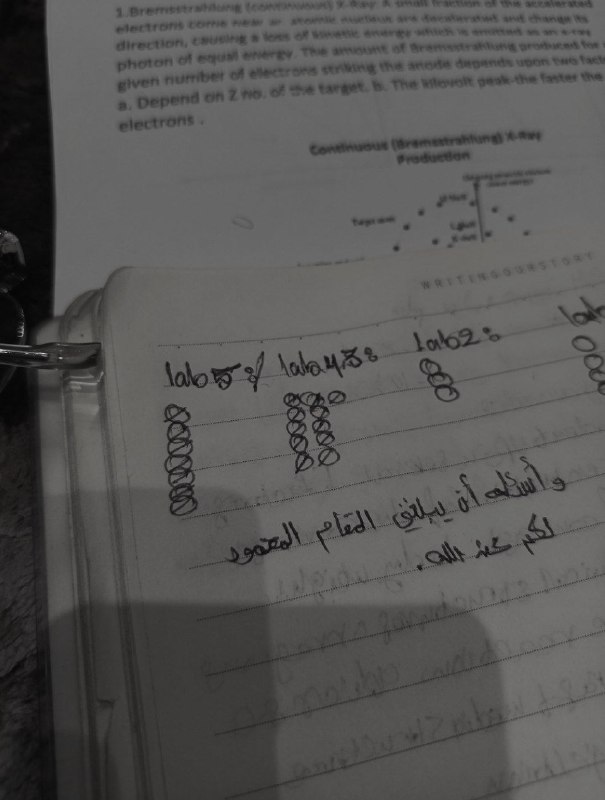 1.Bremsstrahlung (continuous) X-Ray: A small fraction of the accelerated
electrons come near an atomic nucleus are decelerated and change its
direction, causing a loss of kinetic energy which is emitted as an x-ray
photon of equal energy. The amount of Bremsstrahlung produced for
given number of electrons striking the anode depends upon two
a. Depend on Z no. of the target. b. The kilovolt peak-the faster the
electrons .
Continuous (Bremsstrahlung) X-Ray
Production
WRITINGOURSTORY
lab 5 : lab 4,3 : lab 2 : lab
و أسأله أن يبلغني المقام المحمود
لكم عند الله .